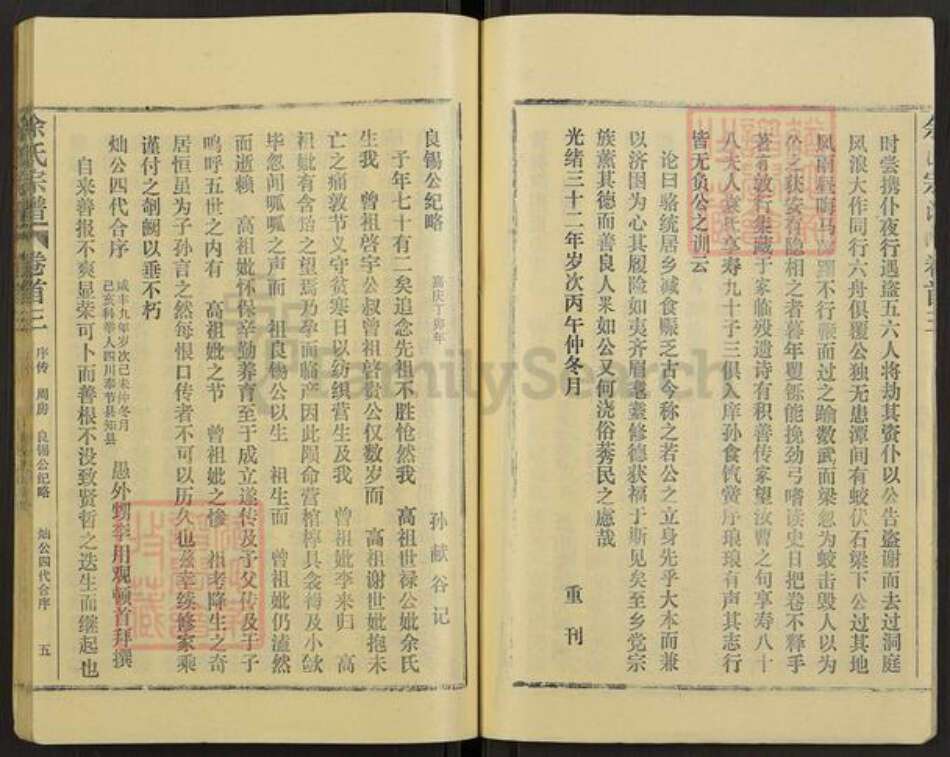 时尝携仆夜行遇盗五六人将劫其资仆以公告盗谢而去过洞庭
风浪大作同行六舟俱覆公独无患潭间有蛟伏石梁下公过其地
风雨昼晦马 不行鞭而过之踰数武而梁忽为蛟击毁人以为
公之获安有隐相之者暮年矍铄能挽劲弓嗜读史日把卷不释手
著有敦行集藏于家临殁遗诗有积善传家望汝曹之句享寿八十
八夫人袁氏享寿九十子三俱入庠孙食饩黉序琅琅有声其志行
皆无负公之训云
论曰骆统居乡减食赈乏古今称之若公之立身先乎大本而兼
以济困为心其履险如夷齐眉耄耋修德获福于斯见矣至乡党宗
族薰其德而善良人果如公又何浇俗莠民之虑哉
光绪三十二年岁次丙午仲冬月 重刊
良锡公纪略 嘉庆丁卯年 孙献谷记
予年七十有二矣追念先祖不胜怆然我 高祖世禄公妣余氏
生我 曾祖啓宇公叔曾祖啓贵公仅数岁而 高祖谢世妣抱未
亡之痛敦节义守贫寒日以纺织营生及我 曾祖妣李来归 高
祖妣有含饴之望焉乃孕而临产因此殒命营棺椁具衾得及小敛
毕忽闻呱呱之声而 祖良锡公以生 祖生而 曾祖妣仍溘然
而逝赖 高祖妣怀保辛勤养育至于成立遂传及于父传及于子
呜呼五世之内有 高祖妣之节 曾祖妣之惨 祖考降生之奇
居恒虽为子孙言之然每恨口传者不可以历久也兹幸续修家乘
谨付之剞劂以垂不朽
灿公四代合序 咸丰九年岁次己未仲冬月
己亥科举人四川奉节县知县 愚外甥李用观顿首拜撰
自来善报不爽显荣可卜而善根不没致贤哲之迭生而继起也
余氏宗谱 卷首三 序传 周房 良锡公纪略 灿公四代合序 五
FamilySearch